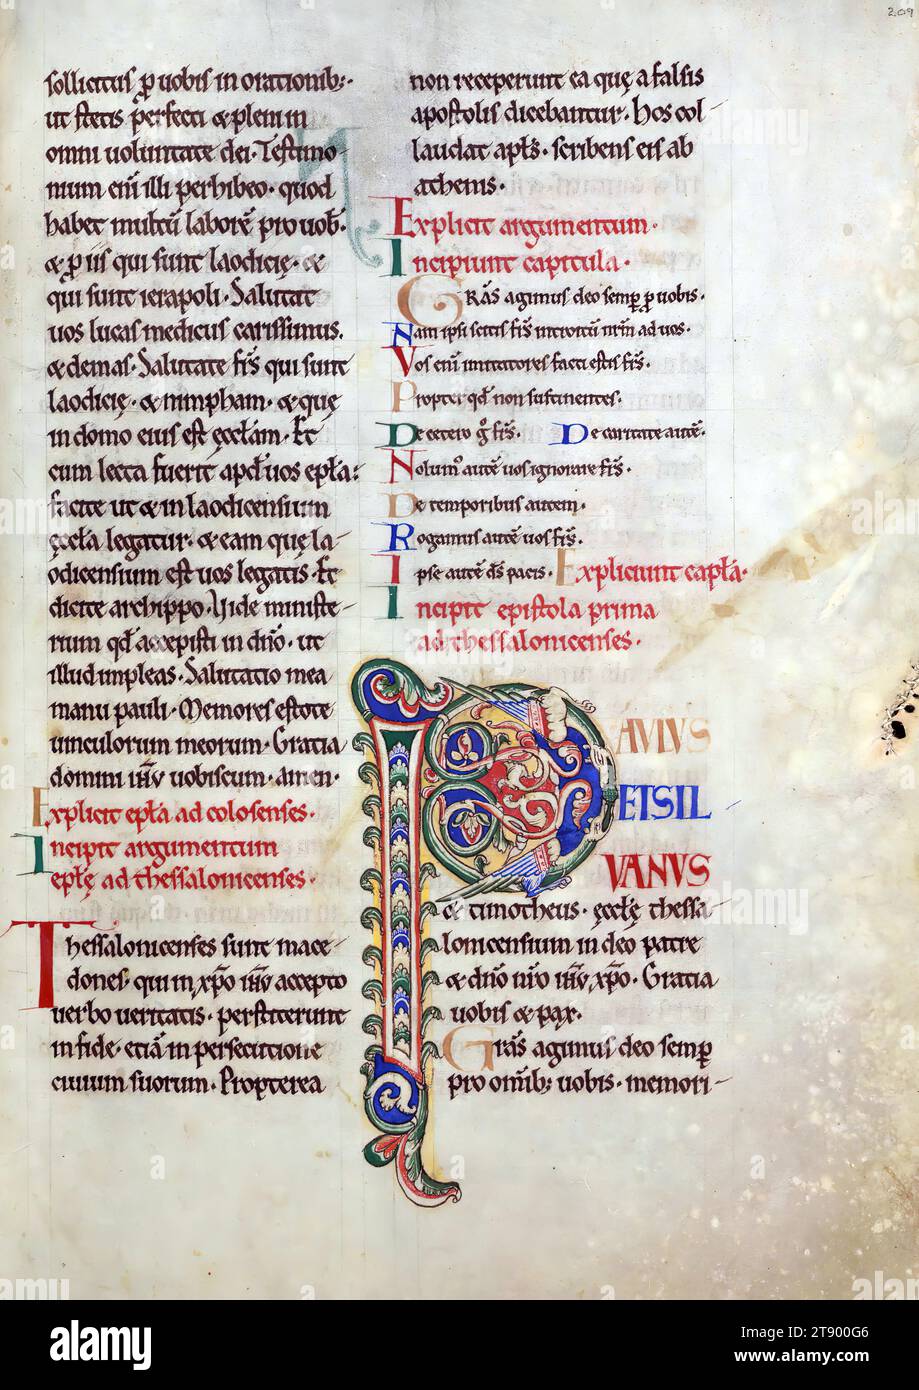 209
sollicitus ꝓ uobis in orationib;·
ut stetis perfecti & pleni in
omni uoluntate dei· Testimo-
nium eni͂ illi perhibeo· quod
habet multu͂ labore͂ pro uob͂·
& ꝓ iis qui sunt laodicię· &
qui sunt ierapoli· Salutat
uos lucas medicus carissimus.
& demas· Salutate fr͂s qui sunt
laodicię· & nimpham· & quę
in domo eius est ęccl͂am· Et
cum lecta fuerit apd͂ uos epl͂a:
facite ut & in laodicensium
ęccl͂a legatur· & eam quę la-
odicensium est uos legatis· Et
dicite archippo· Vide ministe-
rium qd͂ accepisti in dn͂o· ut
illud impleas· Salutatio mea
manu pauli· Memores estote
uinculorum meorum· Gratia
domini ih͂u uobiscum· amen·
Explicit epl͂a ad colosenses·
Incipit argumentum
epl͂ę ad thessalonicenses·
Thessalonicenses sunt mace-
dones· qui in xp͂o ih͂u accepto
uerbo ueritatis· perstiterunt
in fide· etia͂ in persecutione
ciuium suorum· Propterea
non receperunt ea quę a falsis
apostolis dicebantur· Hos col
laudat apl͂s· scribens eis ab
athenis·
Explicit argumentum·
Incipiunt capitula·
Gra͂s agimus deo semꝑ ꝓ uobis·
Nam ipsi scitis fr͂s introitu͂ nr͂m ad uos·
Vos eni͂ imitatores facti estis fr͂s·
Propter qd͂ non sustinentes·
De cetero g͂ fr͂s· De caritate aute͂·
Nolum͂ aute͂ uos ignorare fr͂s·
De temporibus autem·
Rogamus aute͂ uos fr͂s·
Ipse aute͂ d͂s pacis· Expliciunt capl͂a·
Incipit epistola prima
ad thessalonicenses·
PAVLVS
ET SIL
VANVS
& timotheus· ęccl͂ę thessa-
lonicensium in deo patre
& dn͂o nr͂o ih͂u xp͂o· Gratia
uobis & pax·
Gra͂s agimus deo semꝑ
pro om͂ib; uobis· memori-
alamy
Image ID: 2T900G6
www.alamy.com